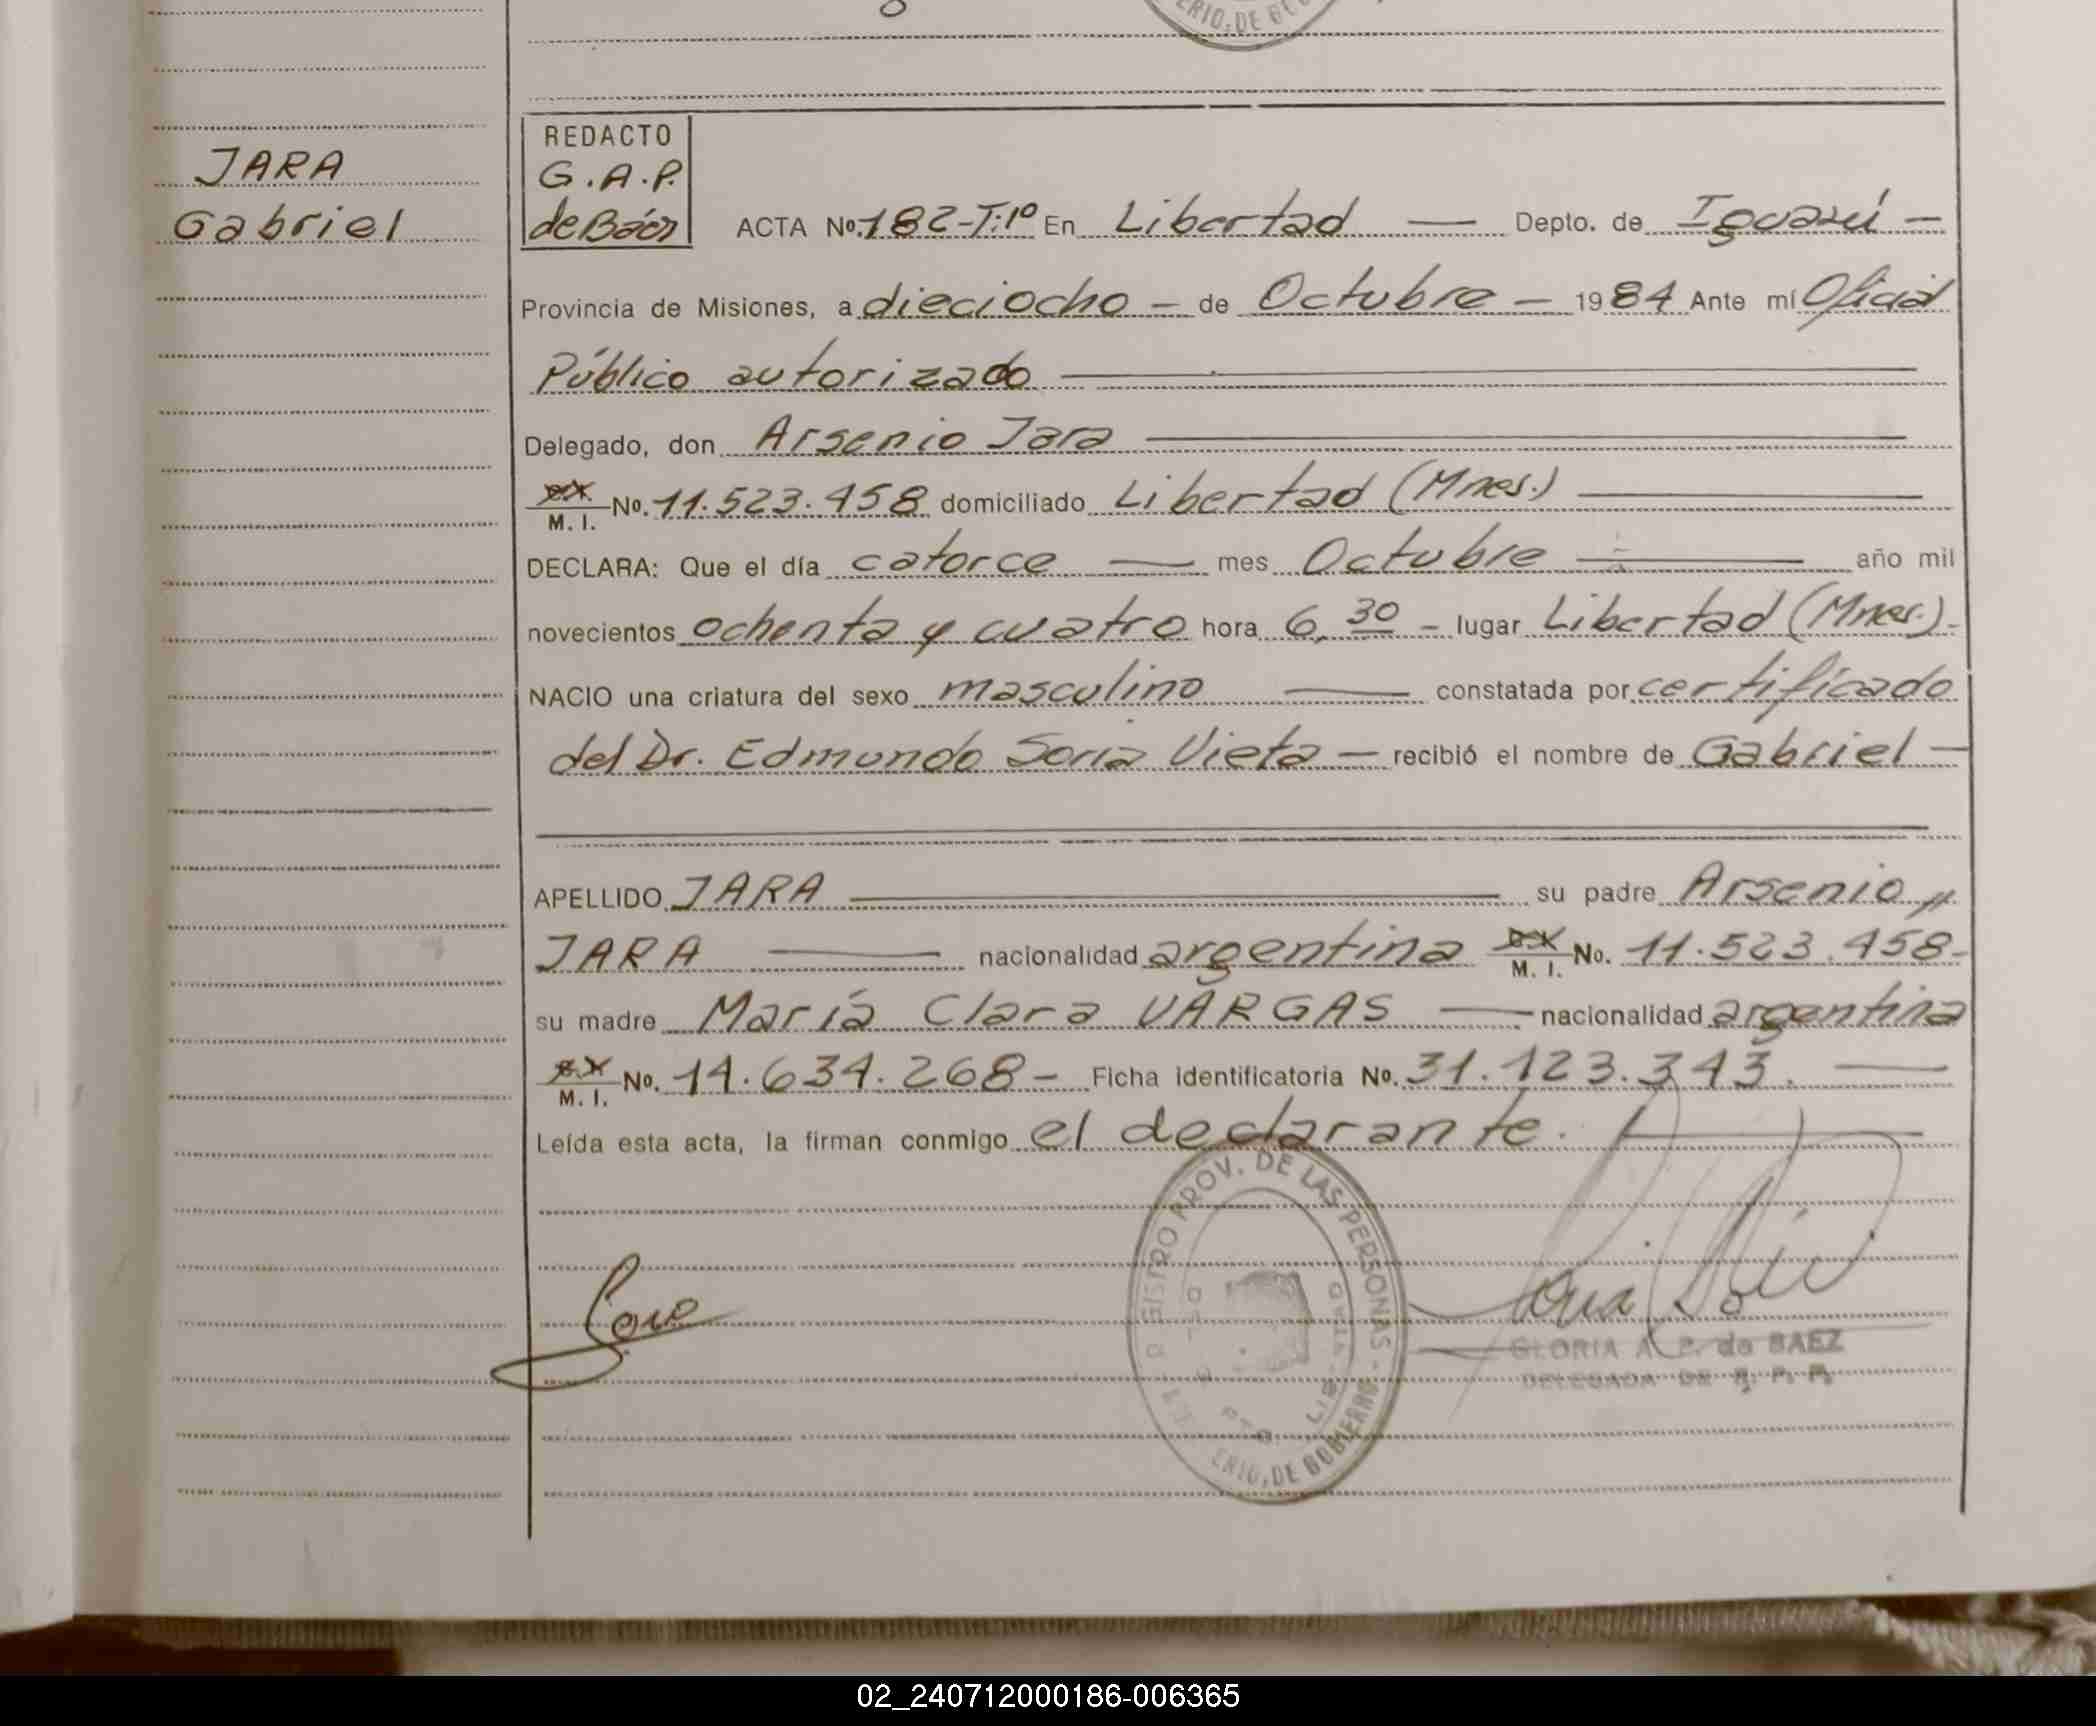 ERIO, DE GO
REDACTO
JARA
G.A.P.
Gabriel
de Báez
ACTA No. 182-T:1º En Libertad — Depto. de Iguazú —
Provincia de Misiones, a dieciocho — de Octubre — 1984 Ante mí Oficial
Público autorizado —
Delegado, don Arsenio Jara —
M. I. No. 11.523.458 domiciliado Libertad (Mnes.) —
DECLARA: Que el día catorce — mes Octubre — año mil
novecientos ochenta y cuatro hora 6,30 — lugar Libertad (Mnes.)-
NACIO una criatura del sexo masculino — constatada por certificado
del Dr. Edmundo Soria Vieta — recibió el nombre de Gabriel —
APELLIDO JARA — su padre Arsenio
JARA — nacionalidad argentina M. I. No. 11.523.458-
su madre María Clara VARGAS — nacionalidad argentina
M. I. No. 14.634.268- Ficha identificatoria No. 31.123.343. —
Leída esta acta, la firman conmigo el declarante. —
REGISTRO PROV. DE LAS PERSONAS
ERIO, DE GOBIERNO
GLORIA A. P. de BAEZ
DELEGADA DE R. P. P.
02_240712000186-006365